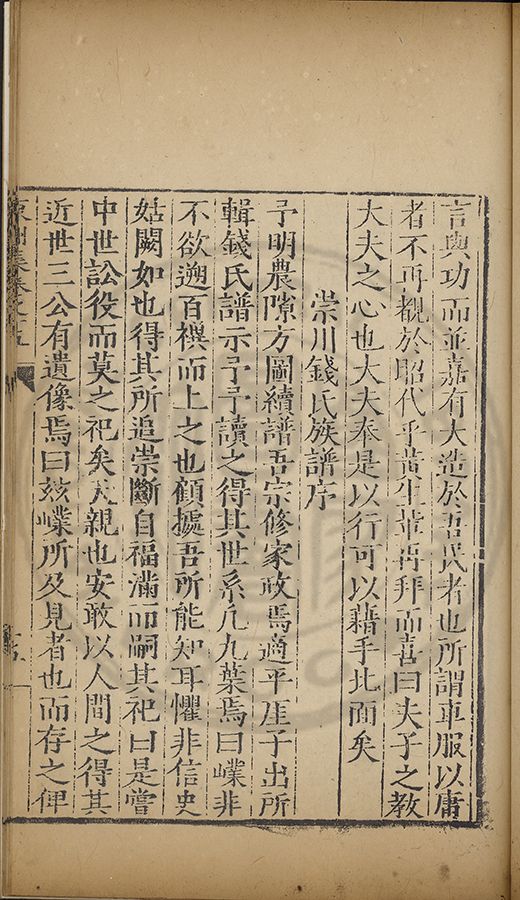 言與功而並嘉有大造於吾民者也所謂車服以庸
者不再覩於昭代乎黃生輩再拜而喜曰夫子之教
大夫之心也大夫奉是以行可以藉手北面矣
崇川錢氏族譜序
予明農隙方圖續譜吾宗修家政焉適平厓子出所
輯錢氏譜示予予讀之得其世系凡九葉焉曰嶫非
不欲遡百禩而上之也顧據吾所能知耳懼非信史
姑闕如也得其所追崇斷自福滿而嗣其祀曰是嘗
中世訟役而莫之祀矣天親也安敢以人間之得其
近世三公有遺像焉曰玆嶫所及見者也而存之俾
東洲集卷之五